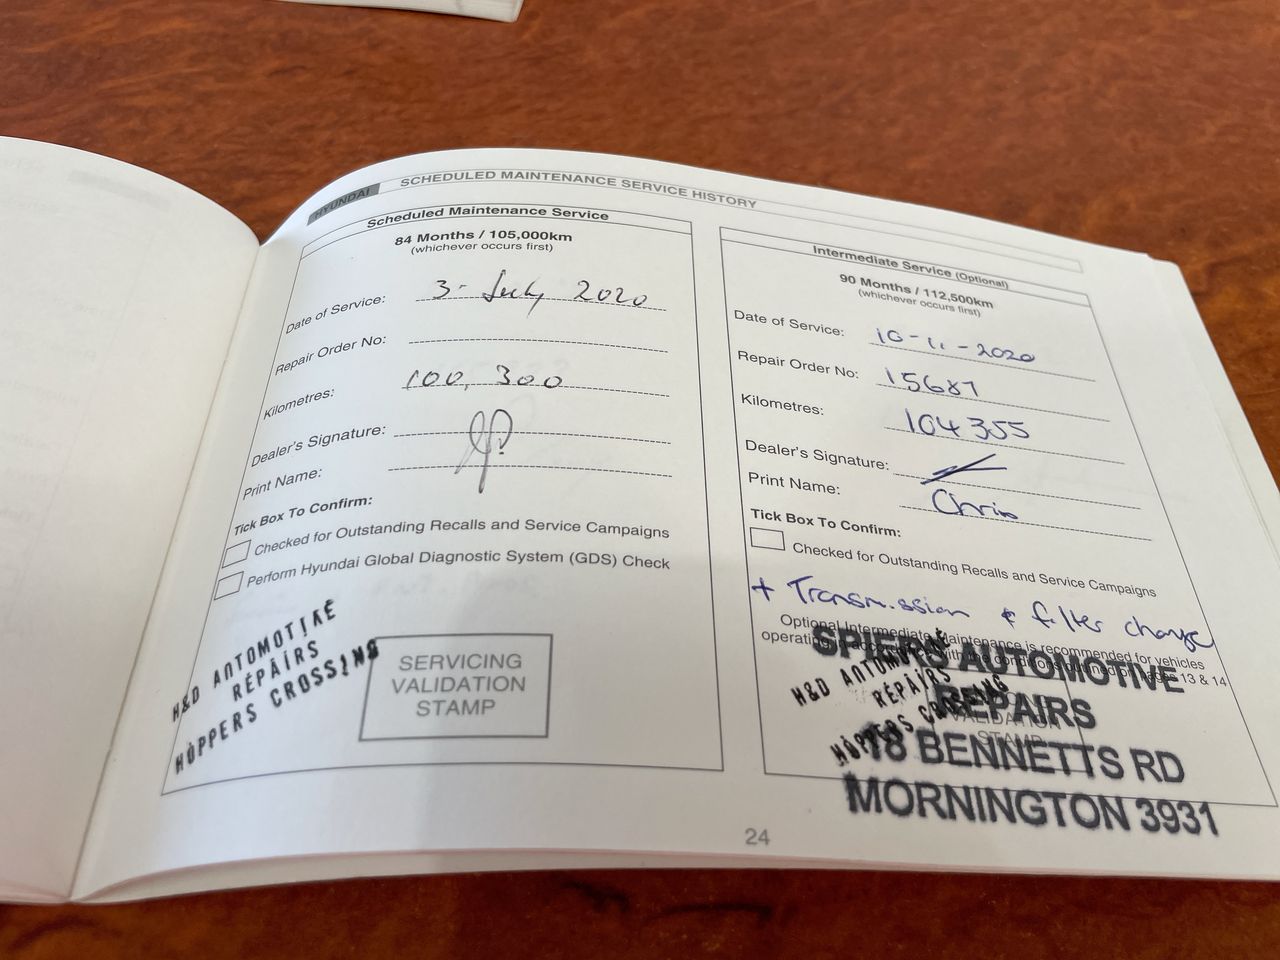 HYUNDAI SCHEDULED MAINTENANCE SERVICE HISTORY
Scheduled Maintenance Service
84 Months / 105,000km
(whichever occurs first)
Date of Service: 3- July 2020
Repair Order No:
Kilometres: 100,300
Dealer's Signature:
Print Name:
Tick Box To Confirm:
Checked for Outstanding Recalls and Service Campaigns
Perform Hyundai Global Diagnostic System (GDS) Check
H&D AUTOMOTIVE
REPAIRS
HOPPERS CROSSING
SERVICING
VALIDATION
STAMP
Intermediate Service (Optional)
90 Months / 112,500km
(whichever occurs first)
Date of Service: 10-11-2020
Repair Order No: 15687
Kilometres: 104355
Dealer's Signature:
Print Name: Chris
Tick Box To Confirm:
Checked for Outstanding Recalls and Service Campaigns
+ Transmission & filter change
Optional Intermediate Maintenance is recommended for vehicles
operating in accordance with the conditions outlined on pages 13 & 14
H&D AUTOMOTIVE
REPAIRS
HOPPERS CROSSING
VALIDATION
STAMP
SPIERS AUTOMOTIVE
REPAIRS
18 BENNETTS RD
MORNINGTON 3931
24